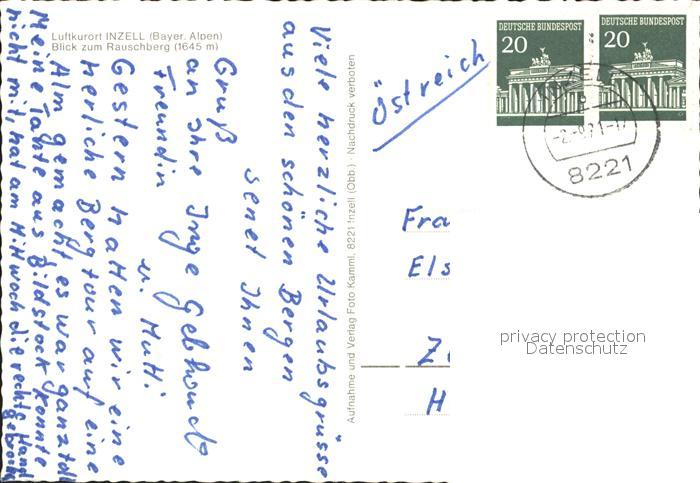 Luftkurort INZELL (Bayer. Alpen)
Blick zum Rauschberg (1645 m)
Viele herzliche Urlaubsgrüsse
aus den schönen Bergen
senet Ihnen
Gruß
an ihre Inge
Freundin u. Mutti
Gestern hatten wir eine
herliche Bergtour auf eine
Alm gemacht es war ganz toll
Meine Tante aus Bildstock konnte
nicht mit, hat am Mittwoch die rechte Hand
Aufnahme und Verlag Foto Kamml, 8221 Inzell (Obb.) · Nachdruck verboten
Östreich
DEUTSCHE BUNDESPOST
20
DEUTSCHE BUNDESPOST
20
INZELL
8221
Fra
Els
Z
H
privacy protection
Datenschutz